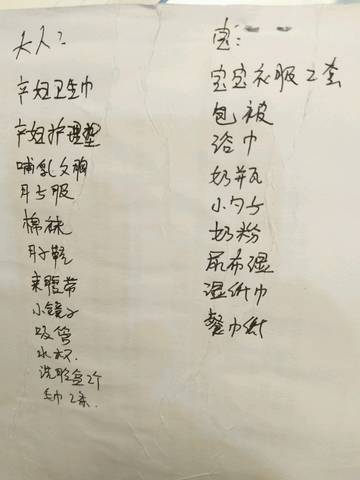 大人:
产妇卫生巾
产妇护理垫
哺乳文胸
月子服
棉袜
月子鞋
束腹带
小镜子
吸管
水杯
洗脸盆2个
毛巾2条.
宝:
宝宝衣服2套
包被
浴巾
奶瓶
小勺子
奶粉
尿布湿
湿纸巾
餐巾纸